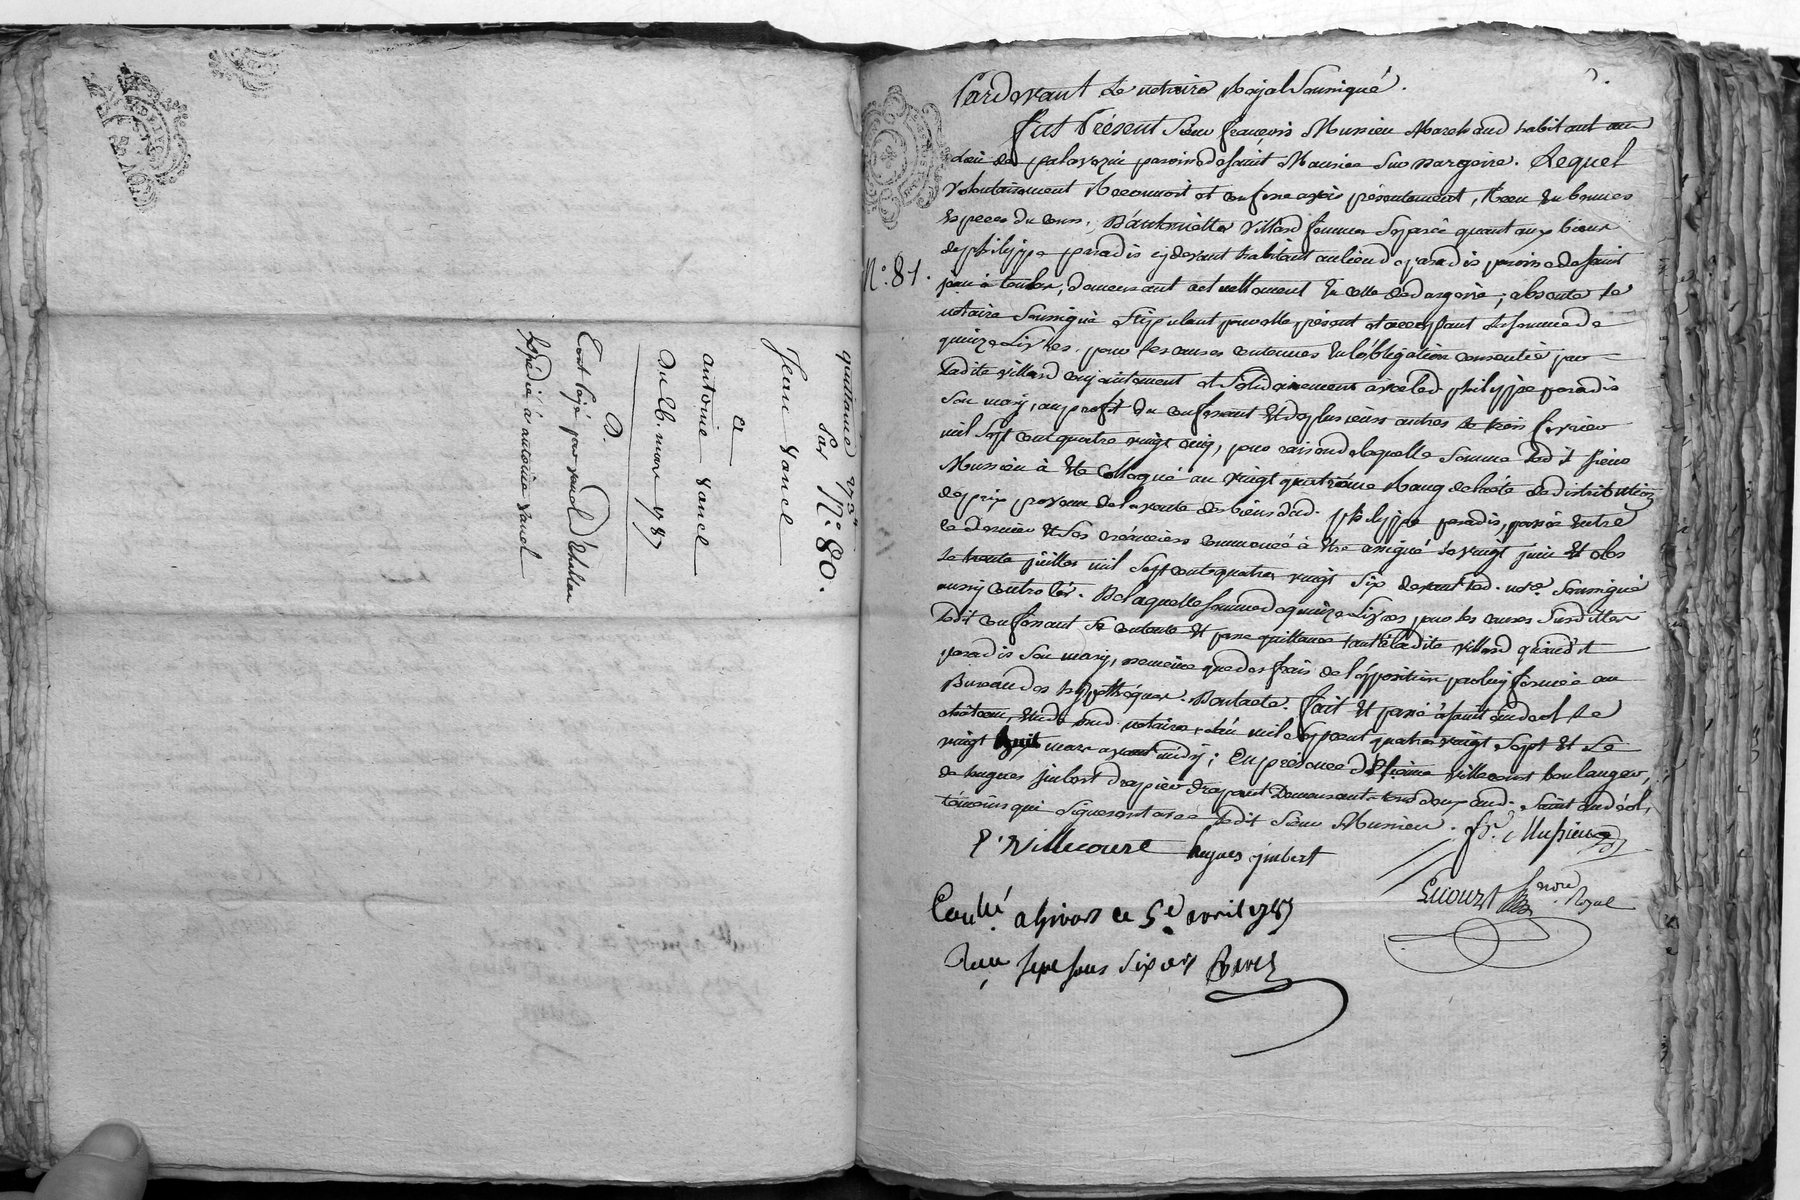 quittance 273#
par N.° 80.
Jean vanel
a
antoine vanel
Du 26. mars 1787
D.
Expédié à antoine vanel
N.° 81.
Pardevant Le notaire Royal Soussigné.
fut Présent Sieur françois Mussieu Marchand habitant au
Lieu de palavezin paroisse de saint Maurice Sur Dargoire. Lequel
volontairement Reconnoit et confesse avoir présentement, Receu En bonnes
Espèces du cours, D'antoinette villard femme Séparée quant aux biens
de philippe paradis cydevant habitant au lieu de paradis paroisse de saint
jean à toulas, demeurant actuellement En celle de dargoire; absente Le
notaire Soussigné Stipulant pour elle présent et acceptant La somme de
quinze Livres, pour les causes contenues En l'obligation consentie par
Ladite villard conjointement et Solidairement avec led philippe paradis
Son mary, au profit du confessant Et de plusieurs autres le trois fevrier
mil Sept cent quatre vingt cinq, pour raison de laquelle Somme Ledit Sieur
Mussieu à Eté Colloqué au vingt quatrième Rang de l'acte de distribution
de prix provenu de la vente des biens dud. philippe paradis, passé Entre
ce dernier Et Ses créanciers commencé à Etre assigné Le vingt juin Et clos
Le trente juillet mil Sept cent quatre vingt Six devant led. not.e Soussigné
aussy controlés. De laquelle Somme de quinze Livres pour les causes Susdittes
Ledit confessant Se contente Et passe quittance tant à ladite villard qu'audit
paradis Son mary, même que des frais de l'opposition par luy formée au
Bureau des hypothèques. Dont acte. fait Et passé à saint andeol Le
château, Etude dud. notaire, L'an mil Sept cent quatre vingt Sept Et Le
vingt huit mars avant midy; En présence d'Etienne villecourt boulanger,
de hugues jmbert drapier drapant Demeurant tous deux aud. Saint andéol,
témoins qui Signeront avec Ledit Sieur Mussieu.
fr. Mussieu
E. Villecourt hugues jmbert
Royal
Con.lé a Givors ce 5.e avril 1787
Recu sept sous six den